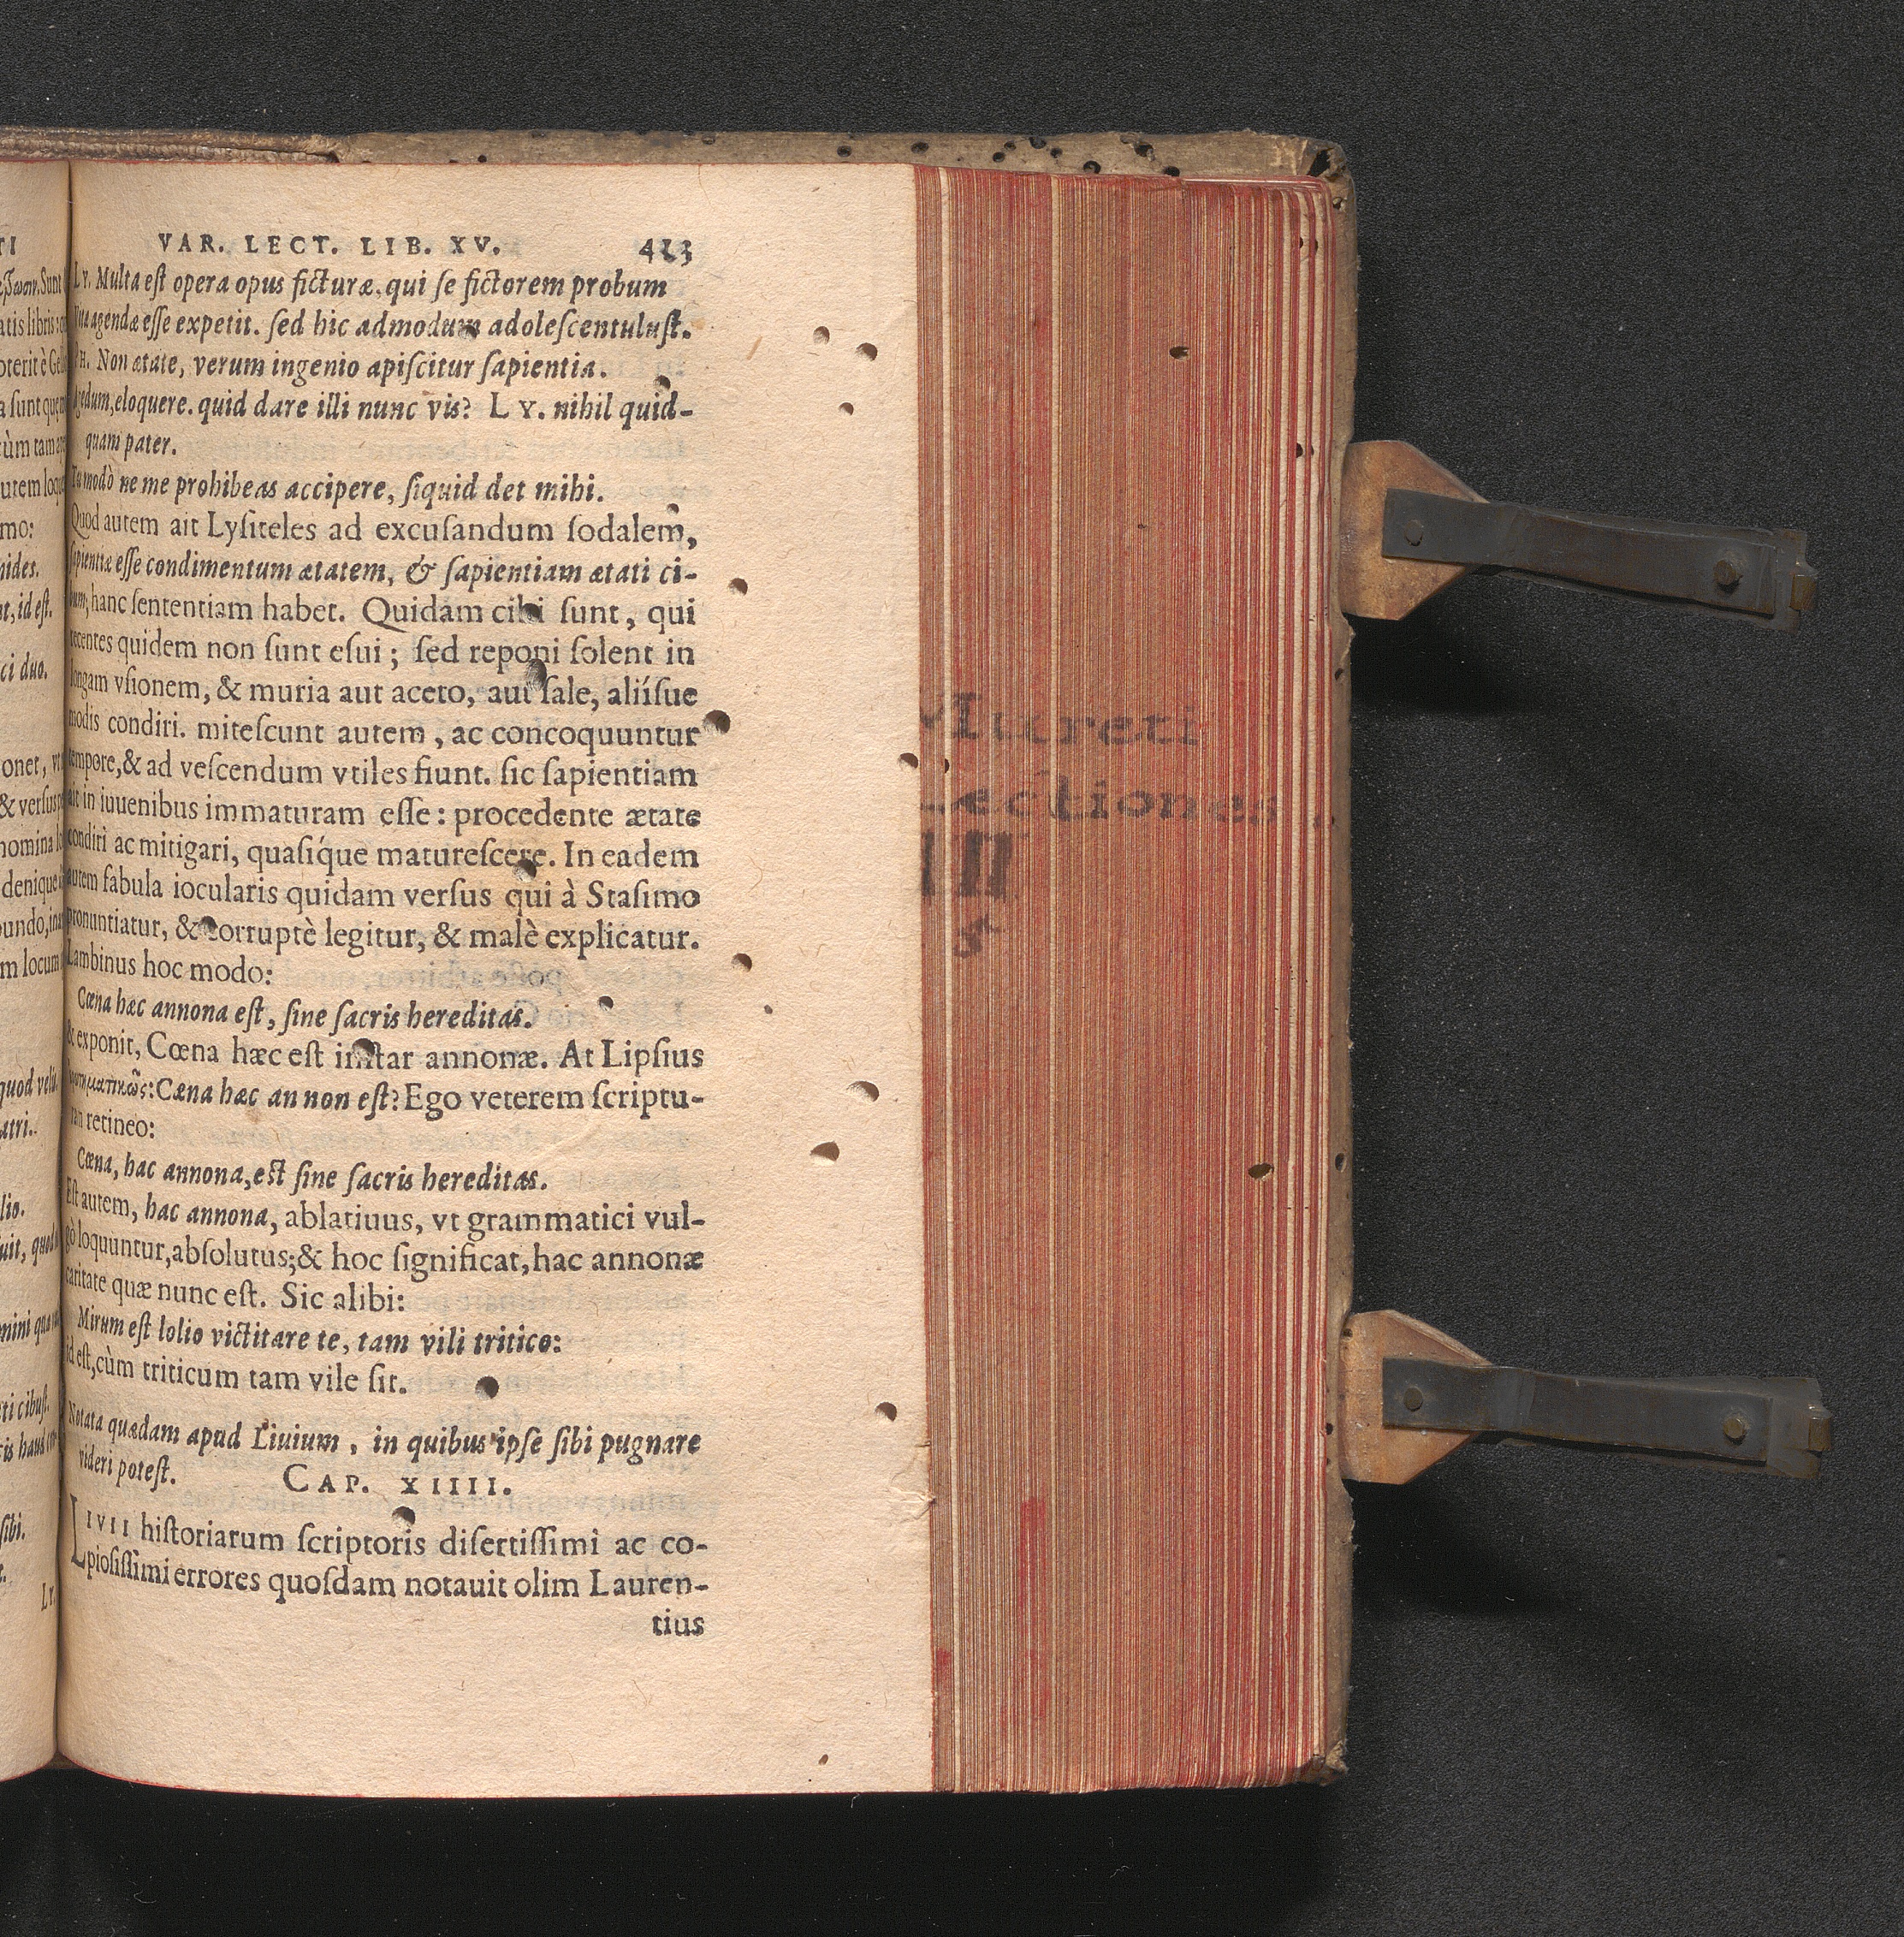 VAR. LECT. LIB. XV. 413
LY. Multa eſt opera opus ficturæ, qui ſe fictorem probum
Vitæ agendæ eſſe expetit. ſed hic admodum adoleſcentuluſt.
PH. Non ætate, verum ingenio apiſcitur ſapientia.
Agedum, eloquere. quid dare illi nunc vis? LY. nihil quid-
quam pater.
Tu modò ne me prohibeas accipere, ſiquid det mihi.
Quod autem ait Lyſiteles ad excuſandum ſodalem,
ſapientiæ eſſe condimentum ætatem, & ſapientiam ætati ci-
bum, hanc ſententiam habet. Quidam cibi ſunt, qui
recentes quidem non ſunt eſui; ſed reponi ſolent in
longam vſionem, & muria aut aceto, aut ſale, aliíſue
modis condiri. miteſcunt autem, ac concoquuntur
tempore, & ad veſcendum vtiles fiunt. ſic ſapientiam
ait in iuuenibus immaturam eſſe: procedente ætate
condiri ac mitigari, quaſíque matureſcere. In eadem
autem fabula iocularis quidam verſus qui à Staſimo
pronuntiatur, & corruptè legitur, & malè explicatur.
Lambinus hoc modo:
Cœna hæc annona eſt, ſine ſacris hereditas.
& exponit, Cœna hæc eſt inſtar annonæ. At Lipſius
Cæna hæc an non eſt? Ego veterem ſcriptu-
ram retineo:
Cœna, hac annona, eſt ſine ſacris hereditas.
Eſt autem, hac annona, ablatiuus, vt grammatici vul-
gò loquuntur, abſolutus; & hoc ſignificat, hac annonæ
caritate quæ nunc eſt. Sic alibi:
Mirum eſt lolio victitare te, tam vili tritico:
id eſt, cùm triticum tam vile ſit.
Notata quædam apud Liuium, in quibus ipſe ſibi pugnare
videri poteſt. CAP. XIIII.
LIVII hiſtoriarum ſcriptoris diſertiſſimi ac co-
pioſiſſimi errores quoſdam notauit olim Lauren-
tius